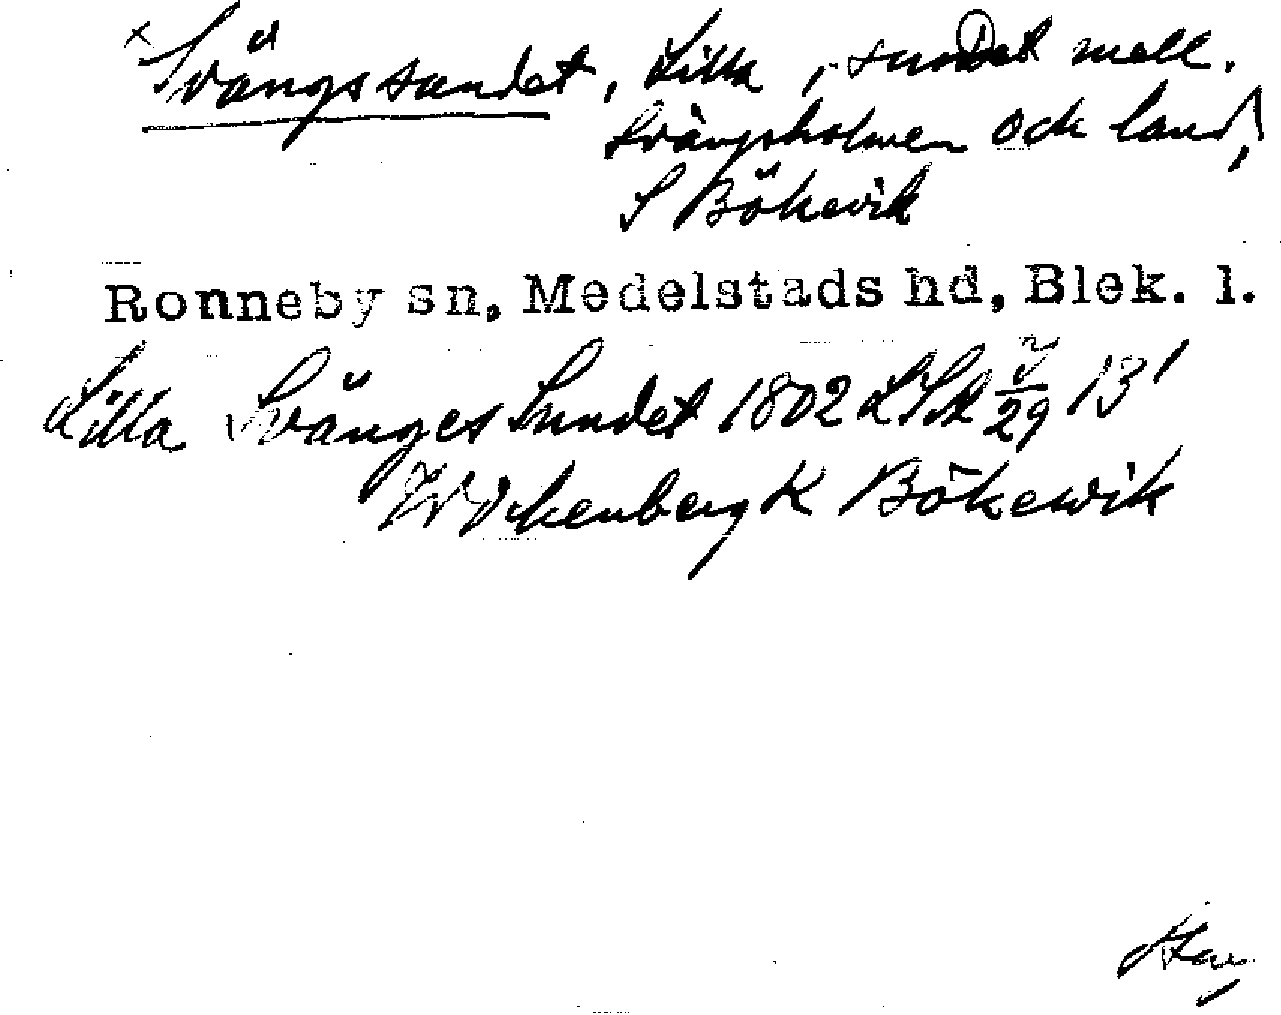 × Svängssundet, Lilla, sundet mell.
Svängsholmen och land,
S Bökevik
Ronneby sn, Medelstads hd, Blek. l.
Lilla Svänges Sundet 1802 LSK 29 13¹
Bökewik